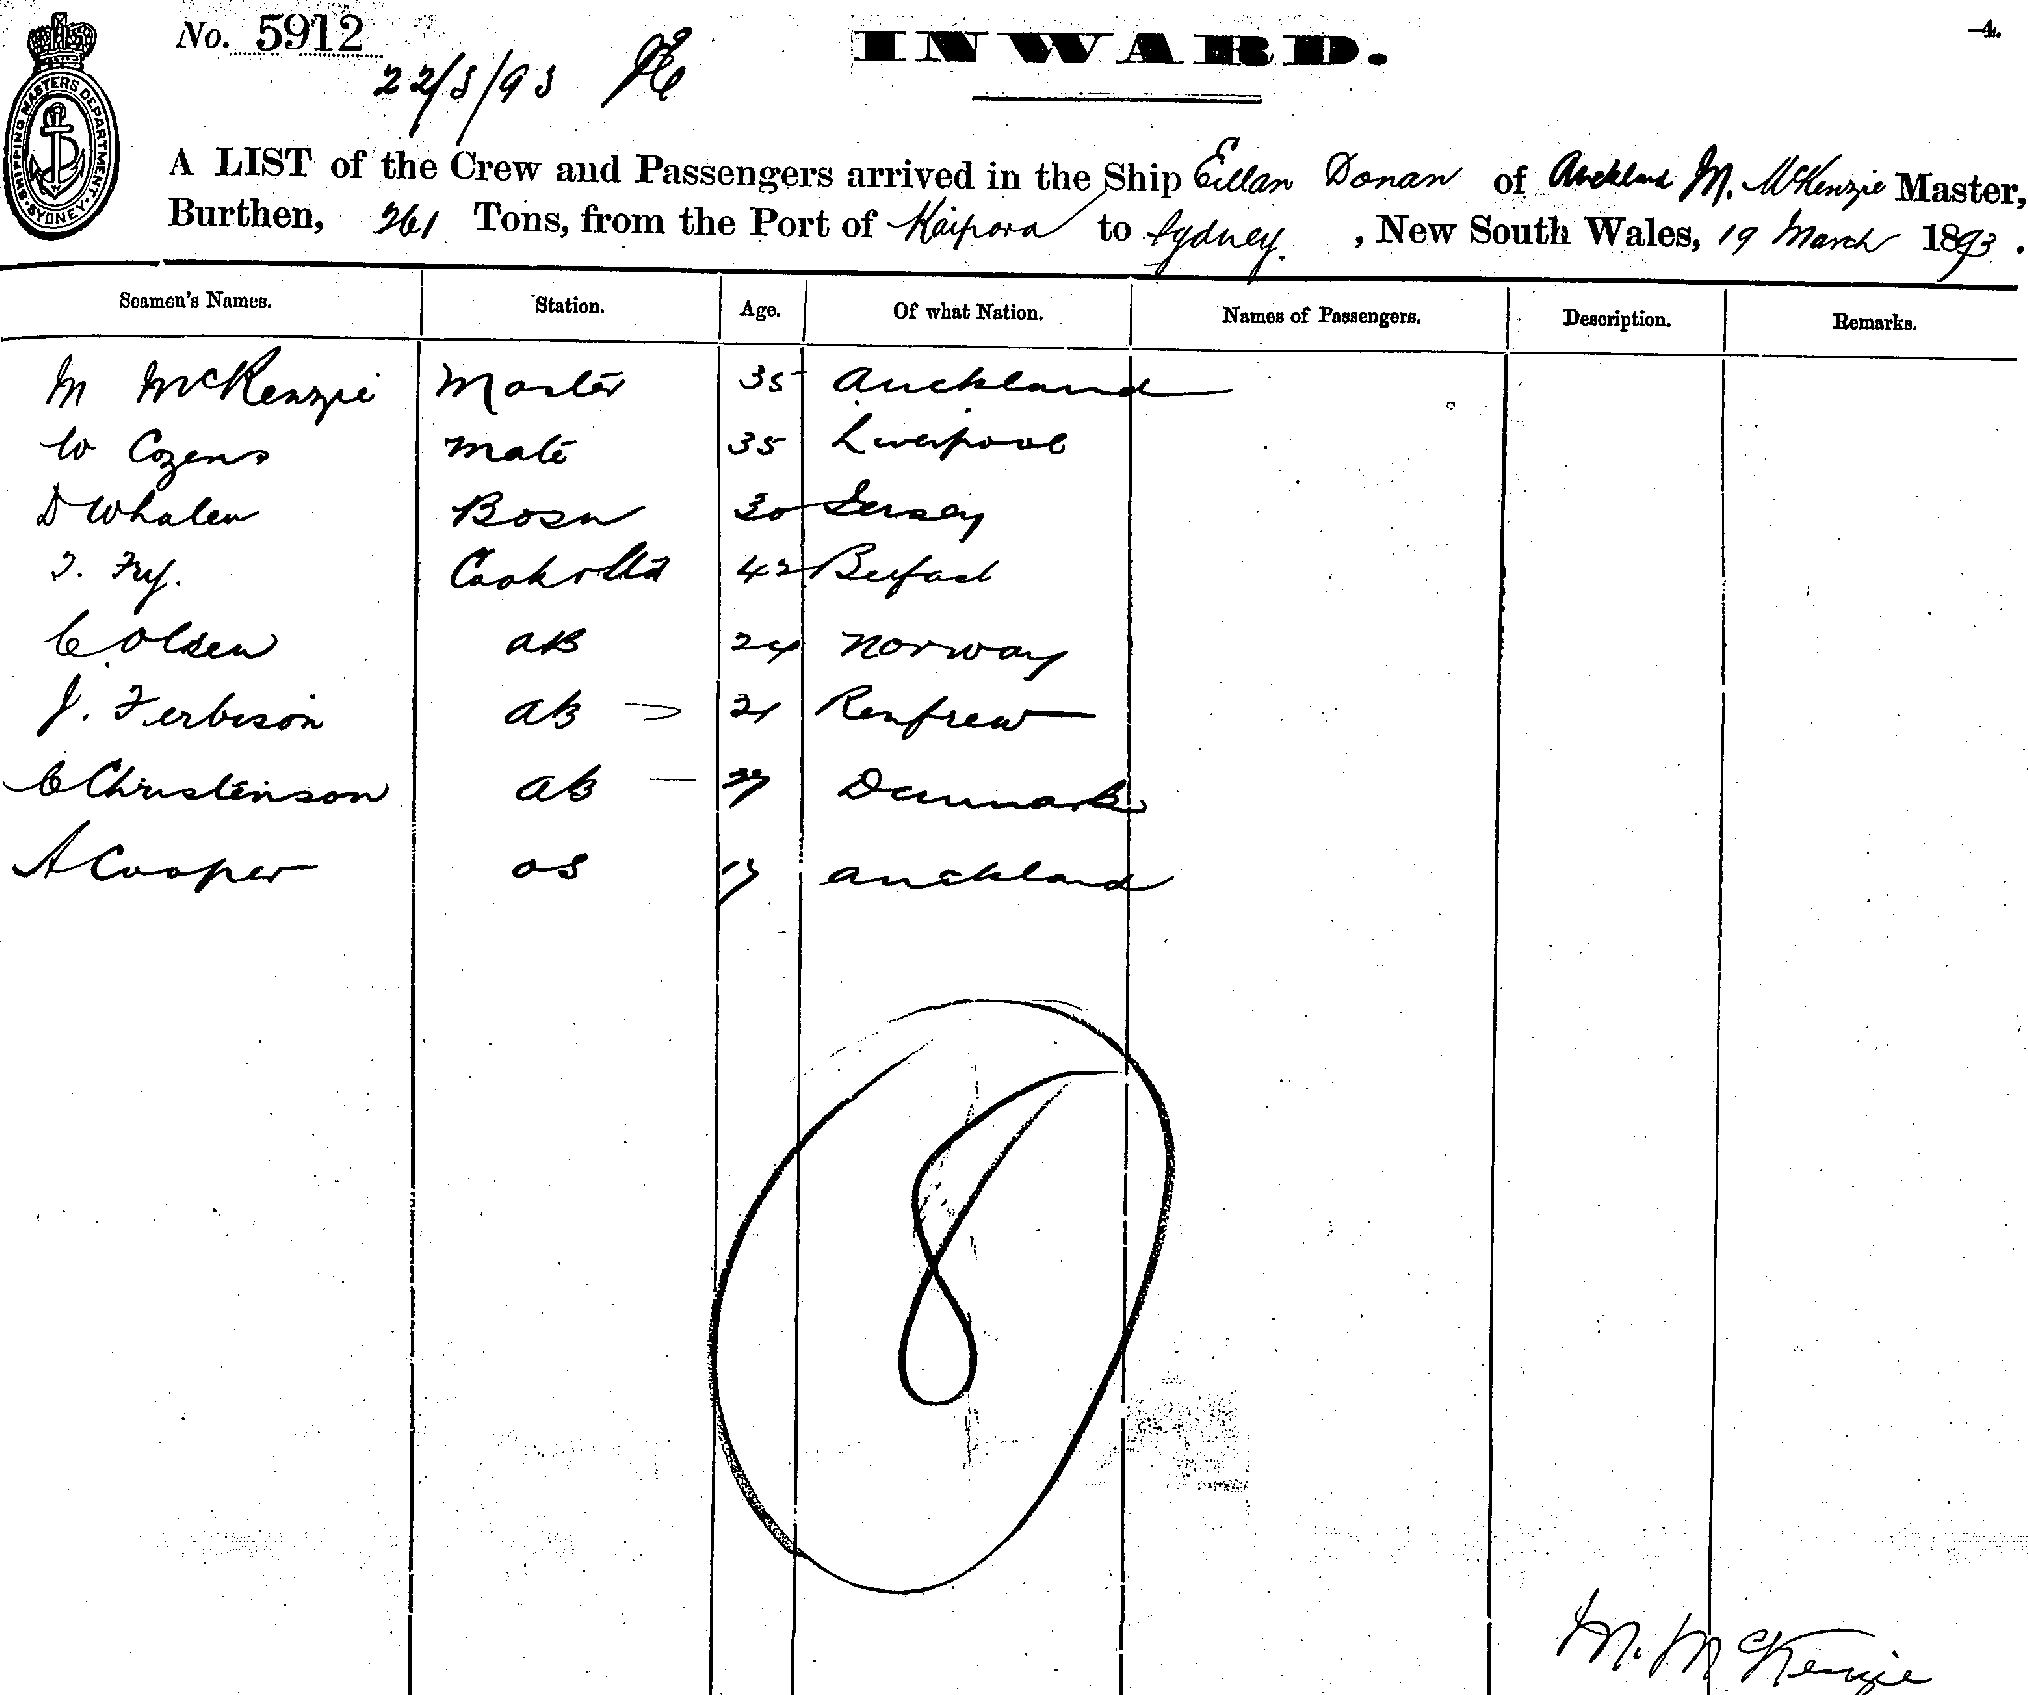 No. 5912
INWARD.
4.
22/3/93
SHIPPING MASTERS DEPARTMENT SYDNEY
A LIST of the Crew and Passengers arrived in the Ship Eillan Donan of Auckland M. McKenzie Master,
Burthen, 261 Tons, from the Port of Kaipara to Sydney. , New South Wales, 19 March 1893.
Seamen's Names. Station. Age. Of what Nation. Names of Passengers. Description. Remarks.
M McKenzie Master 35 Auckland
W Cozens Mate 35 Liverpool
D Whalen Bosn 30 Jersey
T. Fry. Cook 42 Belfast
C Olsen AB 24 Norway
J. Ferbison AB 21 Renfrew
C Christenson AB 27 Denmark
A Cooper OS 17 Auckland
8
M. McKenzie